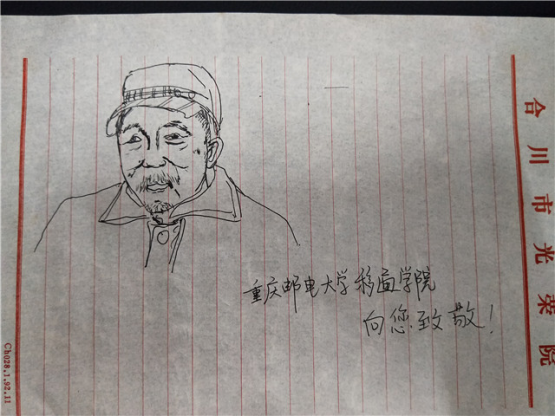 合川市光荣院
重庆邮电大学移通学院
向您致敬！
Ch028.1.92.11